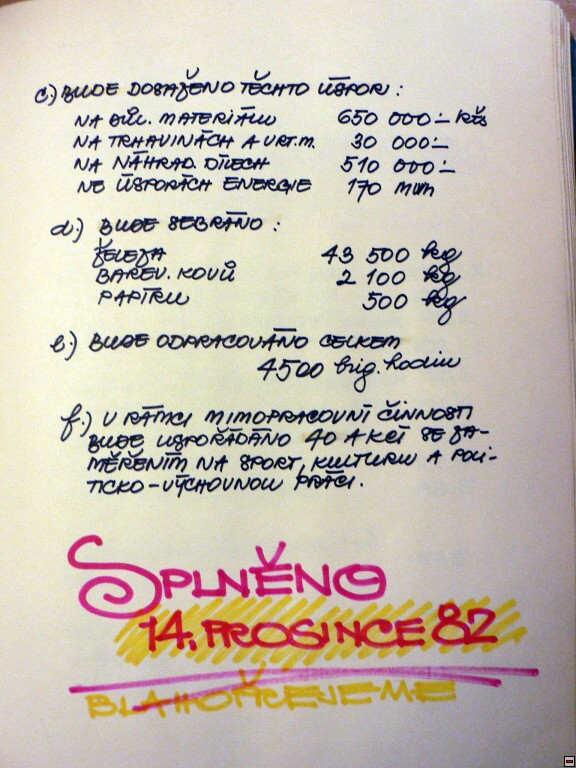 c.) BUDE DOSAŽENO TĚCHTO ÚSPOR:
NA DŮL. MATERIÁLU 650 000:- Kčs
NA TRHAVINÁCH A VRT.M. 30 000:-
NA NÁHRAD. DÍLECH 510 000:-
NE ÚSPORÁCH ENERGIE 170 mwh
d.) BUDE SEBRÁNO:
ŽELEZA 43 500 kg
BAREV. KOVŮ 2 100 kg
PAPÍRU 500 kg
e.) BUDE ODPRACOVÁNO CELKEM
4500 brig. hodin
f.) V RÁMCI MIMOPRACOVNÍ ČINNOSTI
BUDE USPOŘÁDÁNO 40 AKCÍ SE ZA-
MĚŘENÍM NA SPORT, KULTURU A POLI-
TICKO-VÝCHOVNOU PRÁCI.
SPLNĚNO
14. PROSINCE 82
BLAHOPŘEJEME